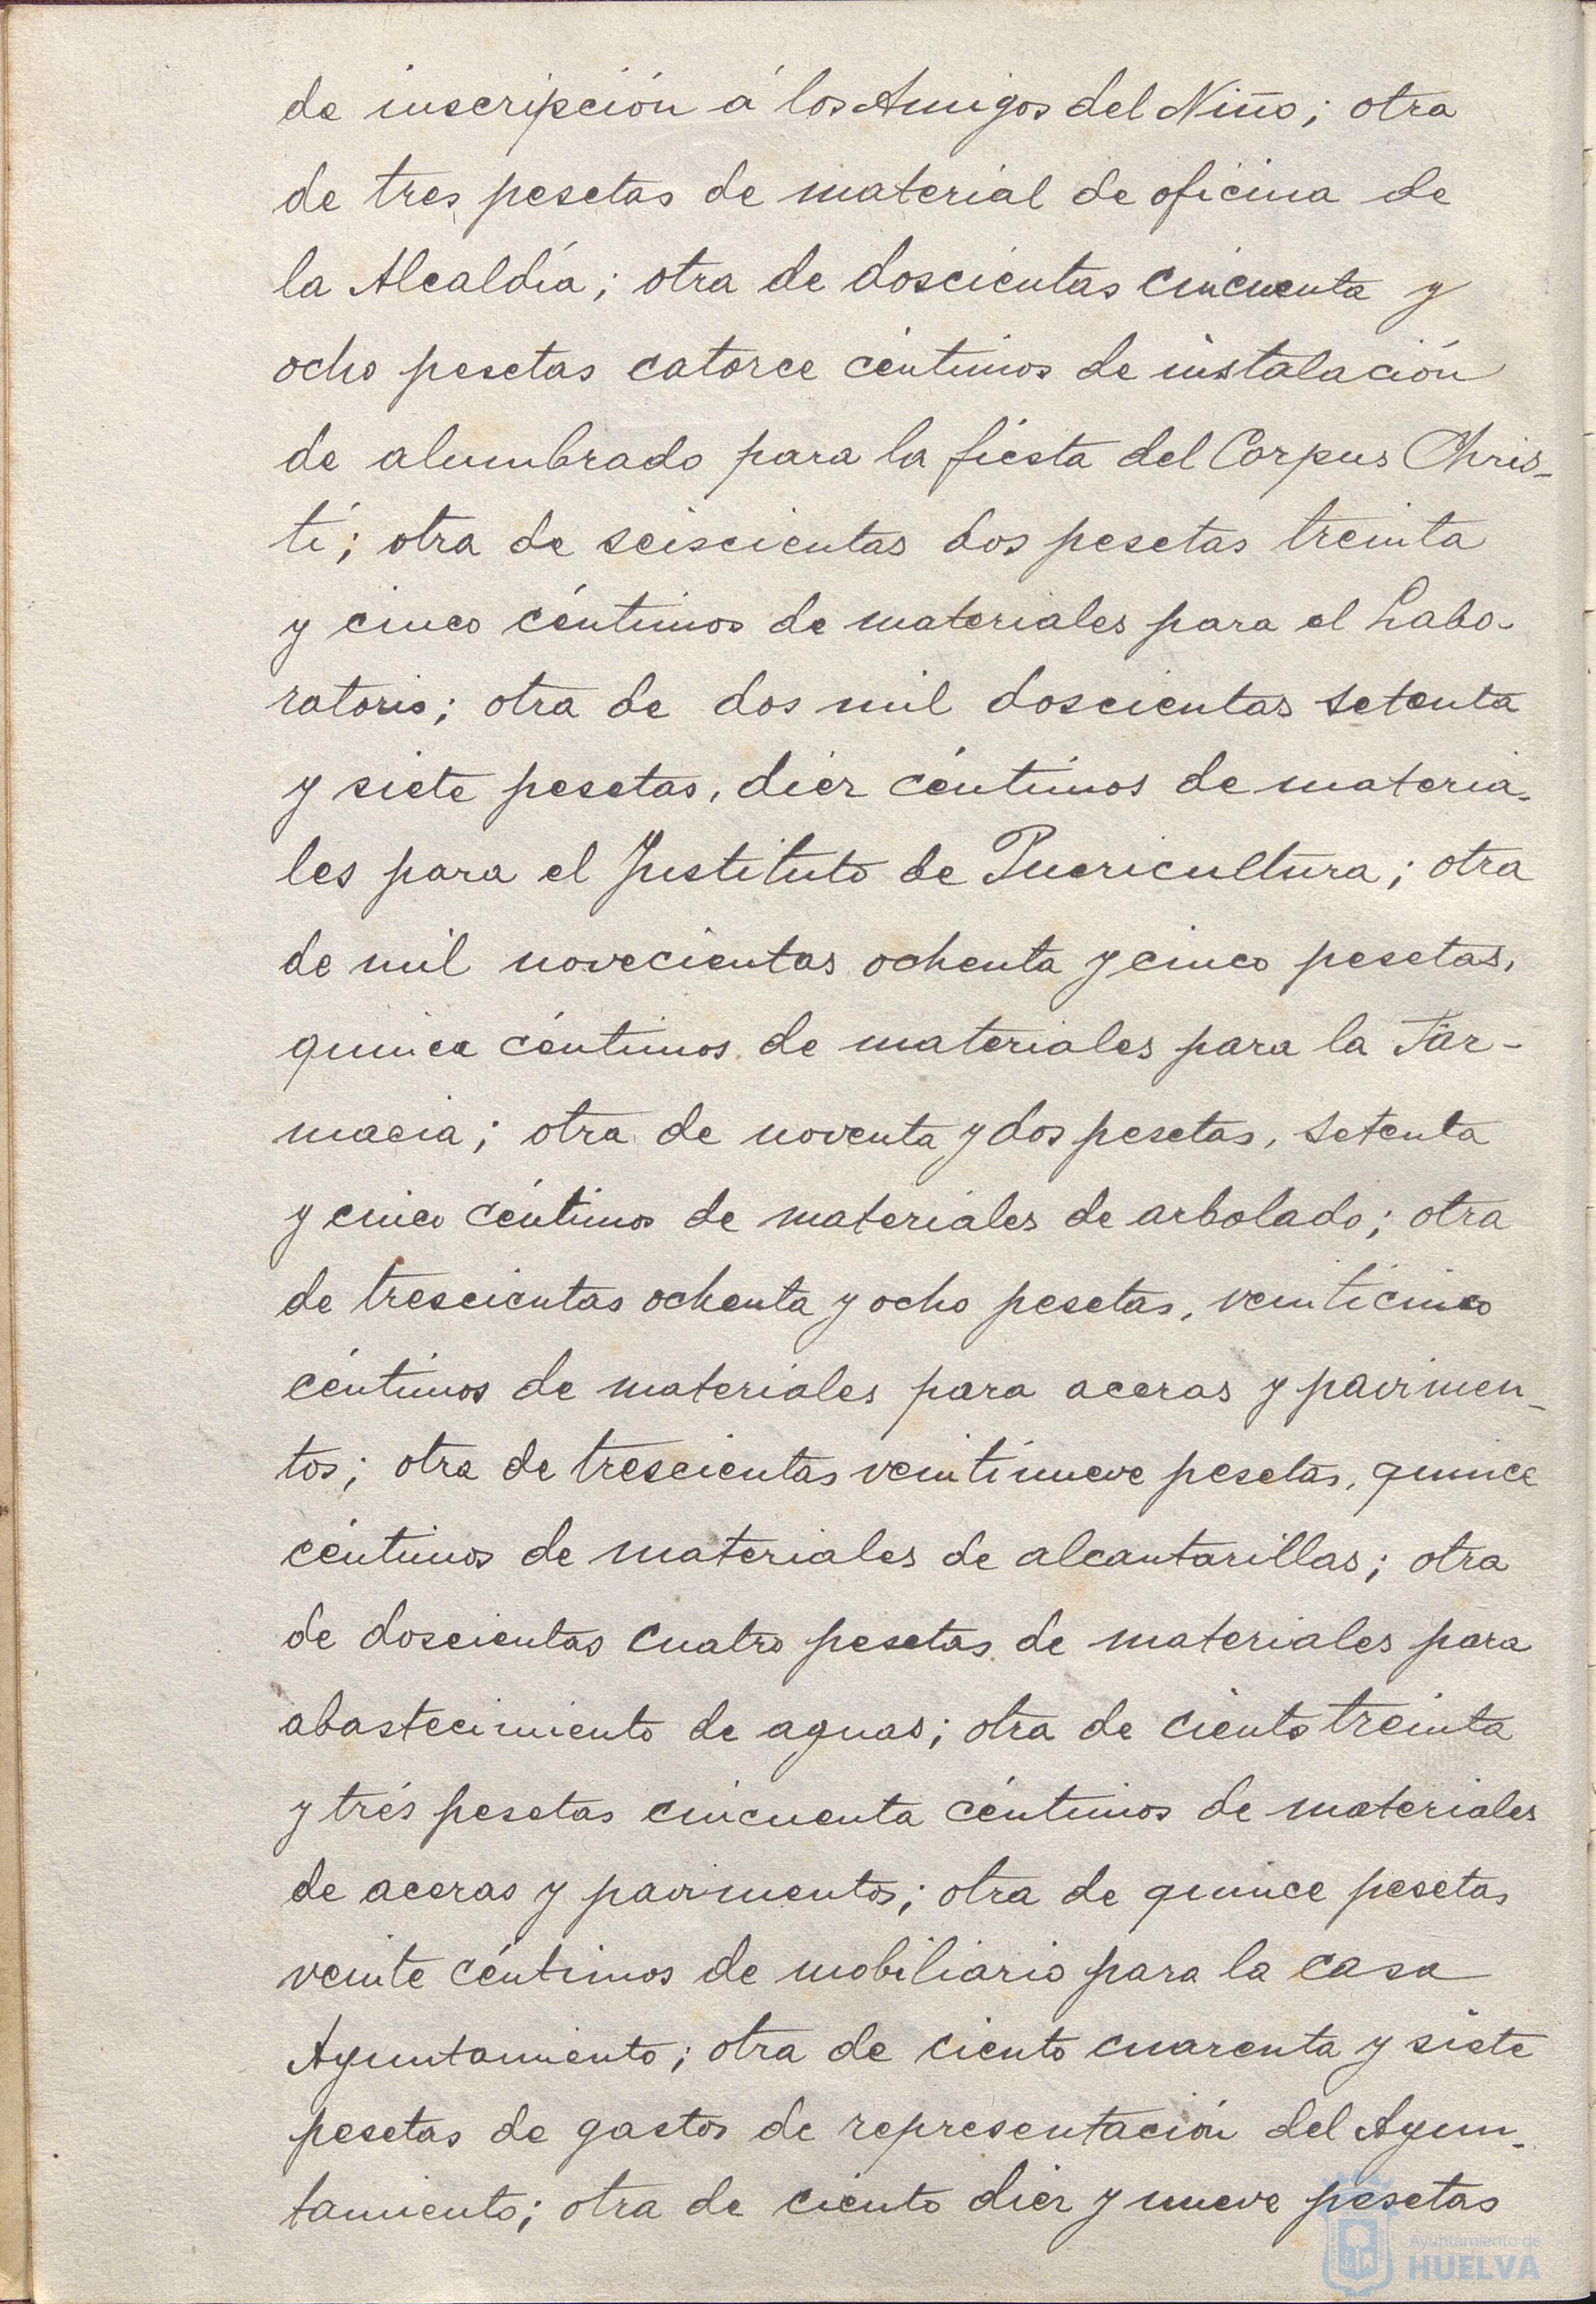 de inscripción á los Amigos del Niño; otra
de tres pesetas de material de oficina de
la Alcaldía; otra de doscientas cincuenta y
ocho pesetas catorce céntimos de instalación
de alumbrado para la fiesta del Corpus Chris-
ti; otra de seiscientas dos pesetas treinta
y cinco céntimos de materiales para el Labo-
ratorio; otra de dos mil doscientas setenta
y siete pesetas, diez céntimos de materia-
les para el Instituto de Puericultura; otra
de mil novecientas ochenta y cinco pesetas,
quince céntimos de materiales para la Far-
macia; otra de noventa y dos pesetas, setenta
y cinco céntimos de materiales de arbolado; otra
de trescientas ochenta y ocho pesetas, veinticinco
céntimos de materiales para aceras y pavimen-
tos; otra de trescientas veintinueve pesetas, quince
céntimos de materiales de alcantarillas; otra
de doscientas cuatro pesetas de materiales para
abastecimiento de aguas; otra de ciento treinta
y trés pesetas cincuenta céntimos de materiales
de aceras y pavimentos; otra de quince pesetas
veinte céntimos de mobiliario para la casa
Ayuntamiento; otra de ciento cuarenta y siete
pesetas de gastos de representación del Ayun-
tamiento; otra de ciento diez y nueve pesetas
Ayuntamiento de
HUELVA